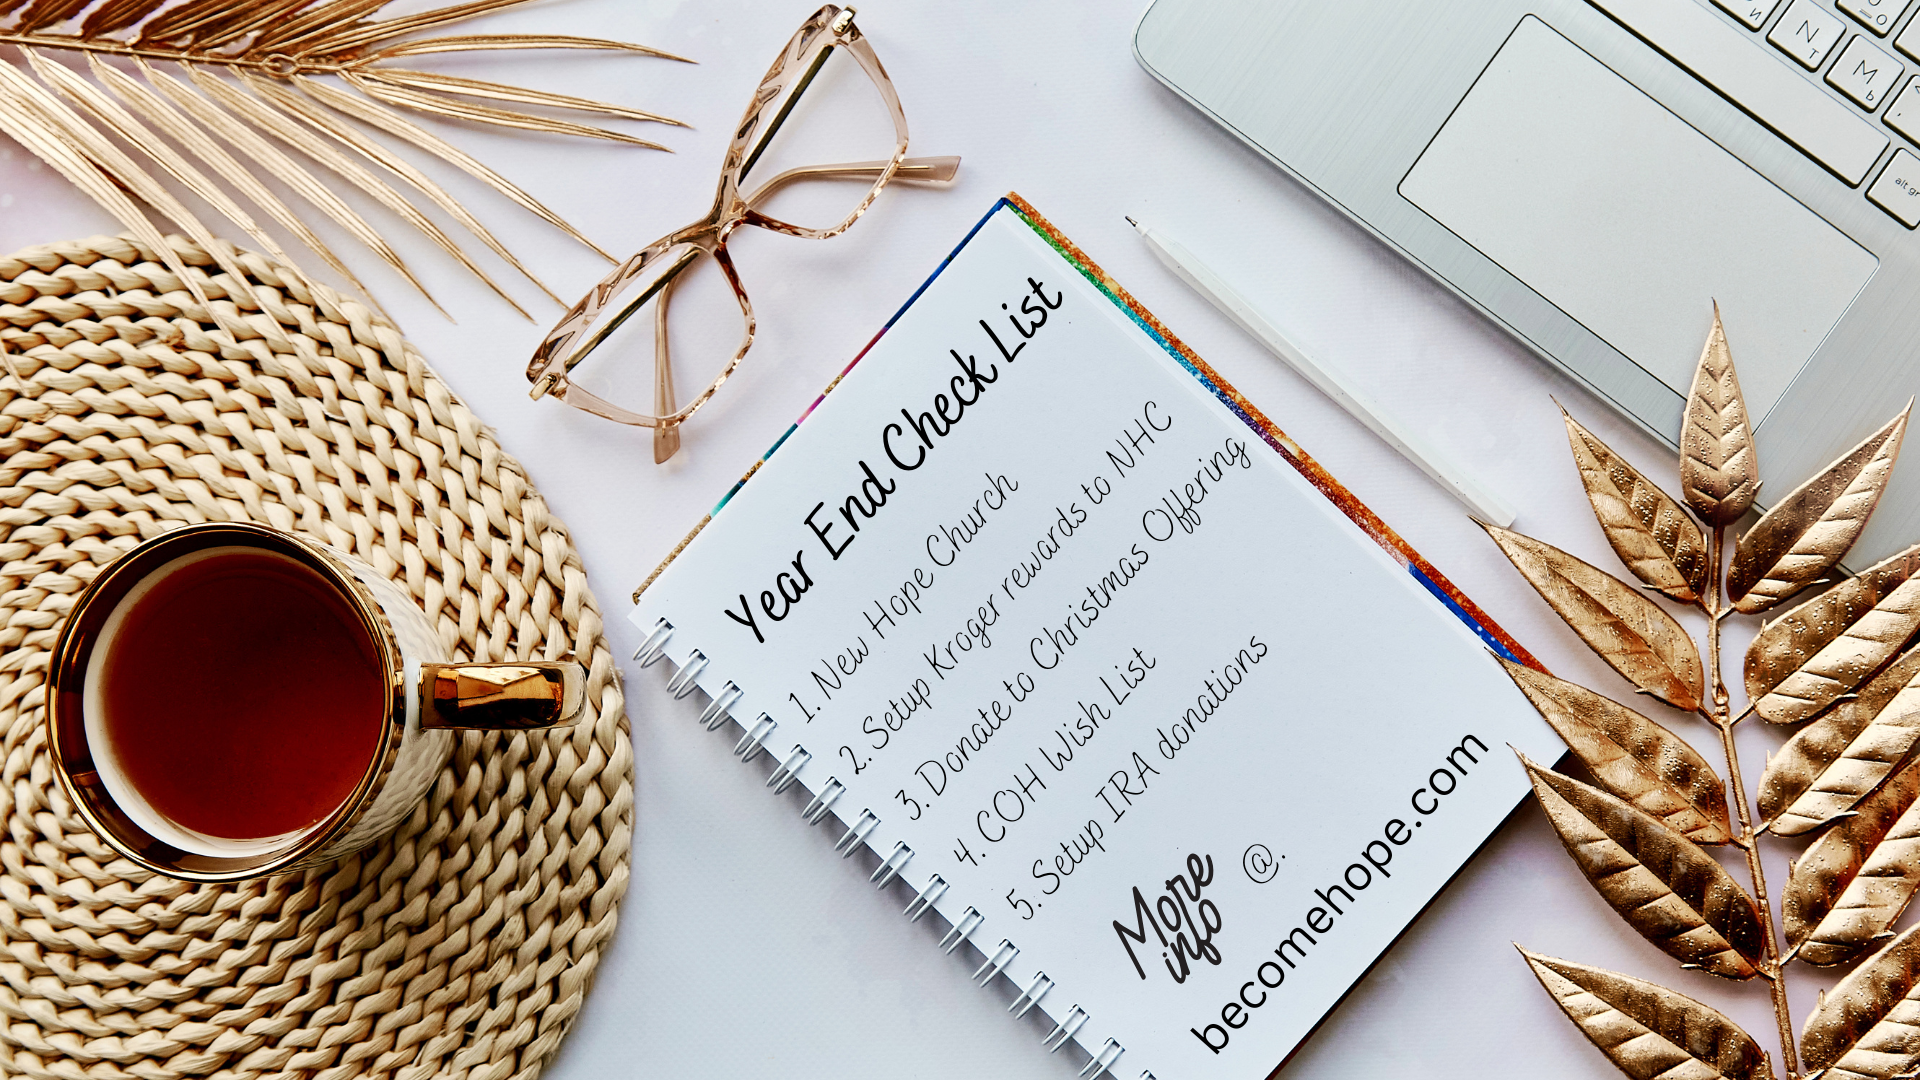 Year End Check List
1. New Hope Church
2. Setup Kroger rewards to NHC
3. Donate to Christmas Offering
4. COH Wish List
5. Setup IRA donations
More
info
@.
becomehope.com
N
т
M
ь
и
alt gr